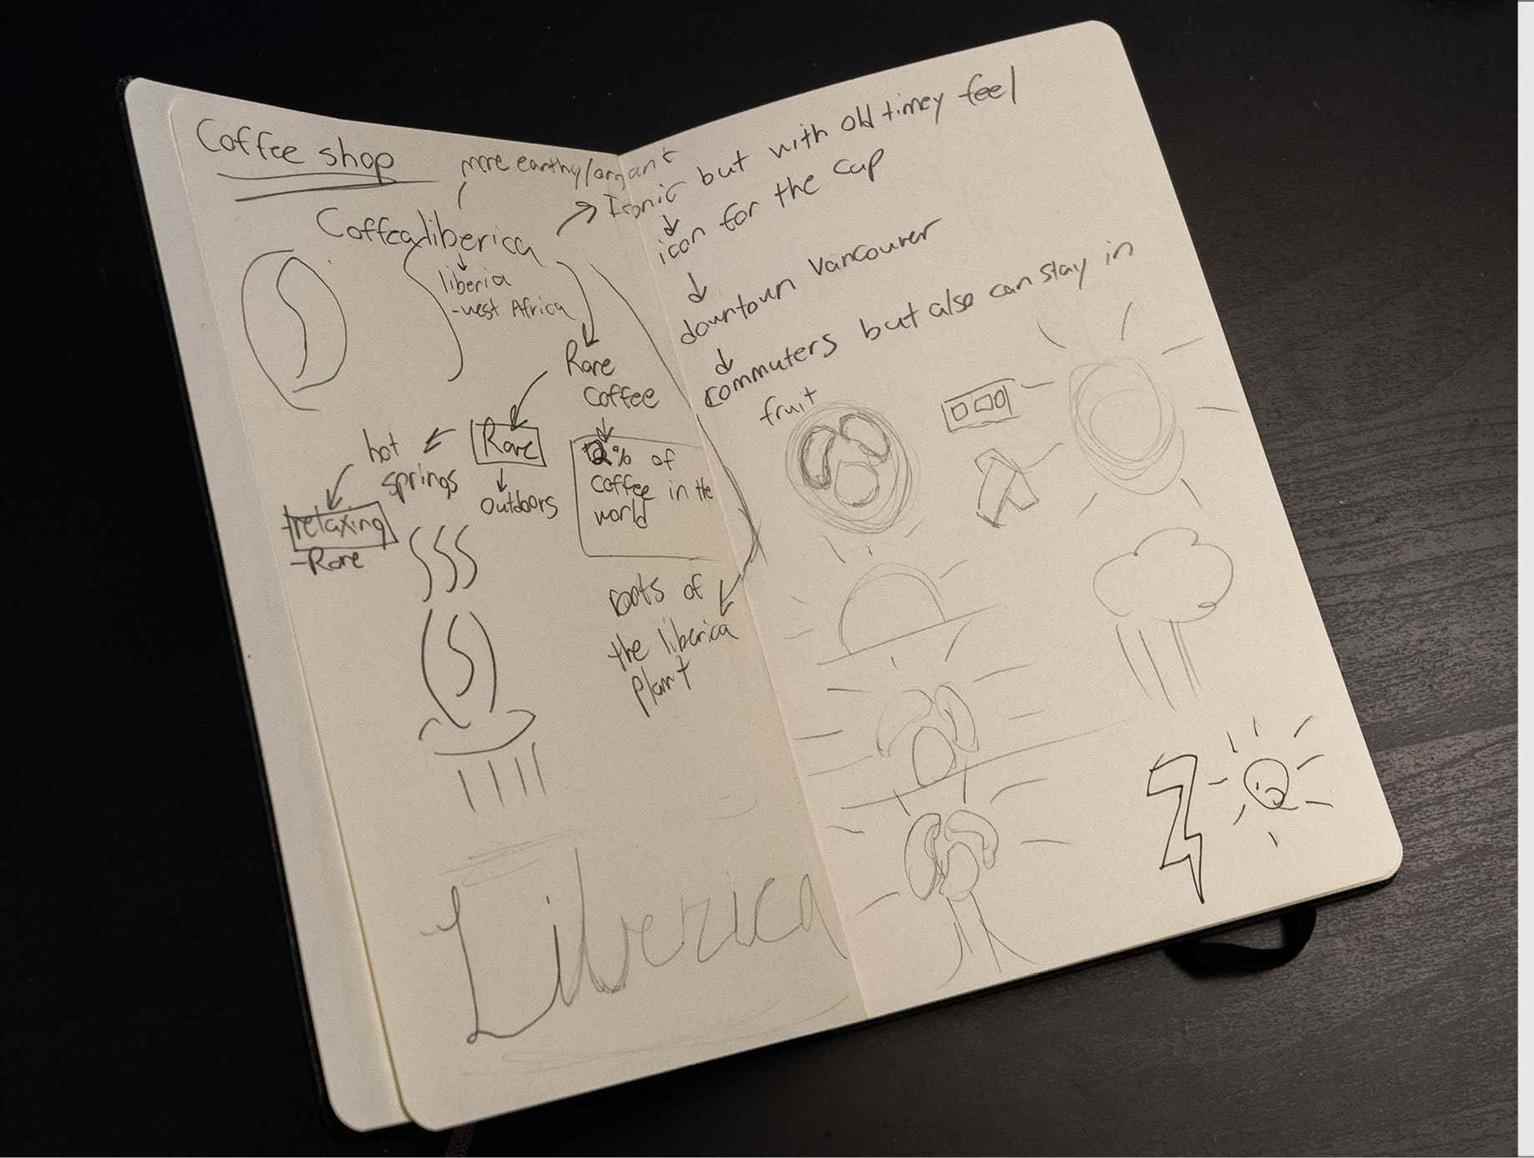 Coffee shop
more earthy/organic
Coffea liberica
liberia
-west Africa
Rare
coffee
2% of
coffee in the
world
Rare
outdoors
hot
springs
relaxing
-Rare
roots of
the liberica
plant
Liberica
Iconic but with old timey feel
icon for the cup
downtown Vancouver
commuters but also can stay in
fruit